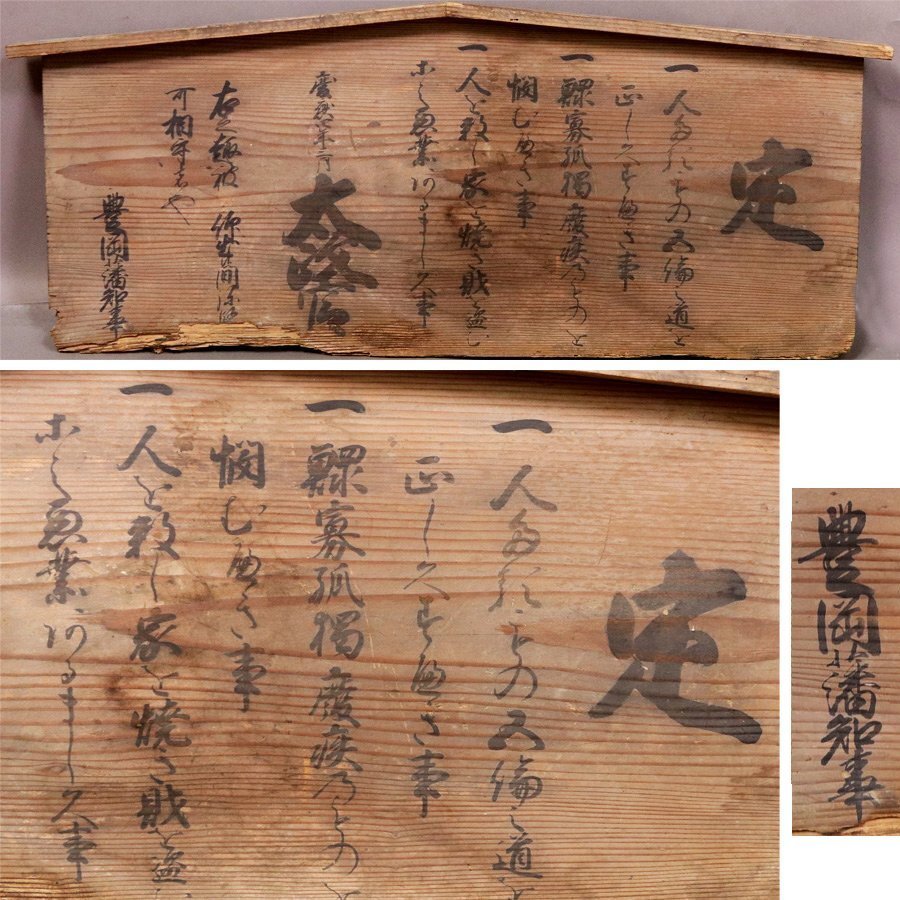 定
一 人たるもの五倫之道を
正しくすへき事
一 鰥寡孤獨癈疾のものを
憫むへき事
一 人を殺し家を焼き財を盗む
等之悪業あるましく事
慶應四年三月
太政官
右之趣被 仰出候間
可相守者也
豊岡藩知事
定
一 人たるもの五倫之道を
正しくすへき事
一 鰥寡孤獨癈疾のものを
憫むへき事
一 人を殺し家を焼き財を盗む
等之悪業あるましく事
豊岡藩知事